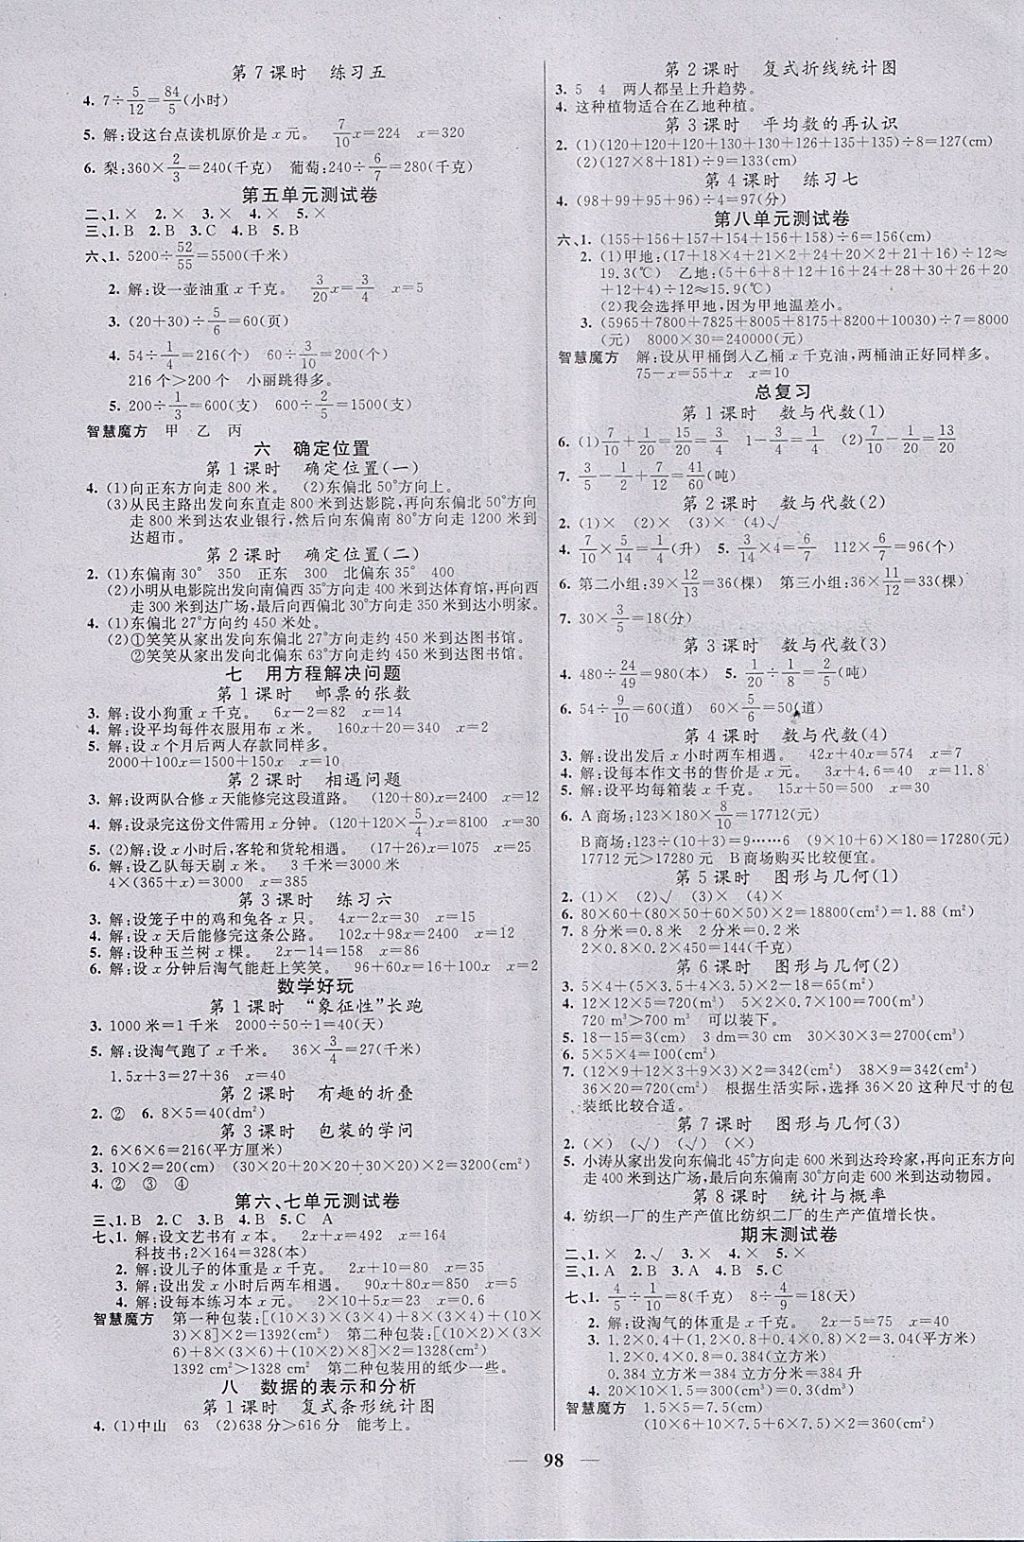 第7课时　练习五
4. 7÷5/12=84/5(小时)
5. 解:设这台点读机原价是x元。　7/10x=224　x=320
6. 梨:360×2/3=240(千克)　葡萄:240÷6/7=280(千克)
第五单元测试卷
二、1.×　2.×　3.×　4.×　5.×
三、1.B　2.B　3.C　4.B　5.B
六、1. 5200÷52/55=5500(千米)
2. 解:设一壶油重x千克。　3/20x=3/4　x=5
3. (20+30)÷5/6=60(页)
4. 54÷1/4=216(个)　60÷3/10=200(个)
216个>200个　小丽跳得多。
5. 200÷1/3=600(支)　600÷2/5=1500(支)
智慧魔方　甲　乙　丙
六　确定位置
第1课时　确定位置(一)
4. (1)向正东方向走800米。　(2)东偏北50°方向上。
(3)从民主路出发向东直走800米到达影院,再向东偏北50°方向走800米到达农业银行,然后向东偏南80°方向走1200米到达超市。
第2课时　确定位置(二)
2. (1)东偏南30°　350　正东　300　北偏东35°　400
(2)小明从电影院出发向南偏西35°方向走400米到达体育馆,再向西走300米到达广场,最后向西偏北30°方向走350米到达小明家。
4. (1)东偏北27°方向约450米处。
(2)①笑笑从家出发向东偏北27°方向走约450米到达图书馆。
②笑笑从家出发向北偏东63°方向走约450米到达图书馆。
七　用方程解决问题
第1课时　邮票的张数
3. 解:设小狗重x千克。　6x-2=82　x=14
4. 解:设平均每件衣服用布x米。　160x+20=340　x=2
5. 解:设x个月后两人存款同样多。
2000+100x=1500+150x　x=10
第2课时　相遇问题
3. 解:设两队合修x天能修完这段道路。　(120+80)x=2400　x=12
4. 解:设录完这份文件需用x分钟。　(120+120×5/4)x=8100　x=30
5. (2)解:设x小时后,客轮和货轮相遇。　(17+26)x=1075　x=25
6. 解:设乙队每天刷x米。　3千米=3000米
4×(365+x)=3000　x=385
第3课时　练习六
3. 解:设笼子中的鸡和兔各x只。　4x-2x=30　x=15
4. 解:设x天后能修完这条公路。　102x+98x=2400　x=12
5. 解:设种玉兰树x棵。　2x-14=158　x=86
6. 解:设x分钟后淘气能赶上笑笑。　96+60x=16+100x　x=2
数学好玩
第1课时　“象征性”长跑
3. 1000米=1千米　2000÷50÷1=40(天)
5. 解:设淘气跑了x千米。　36×3/4=27(千米)
1.5x+3=27+36　x=40
第2课时　有趣的折叠
2. ②　6. 8×5=40(dm²)
第3课时　包装的学问
2. 6×6×6=216(平方厘米)
3. 10×2=20(cm)　(30×20+20×20+30×20)×2=3200(cm²)
4. ②　③　④
第六、七单元测试卷
三、1.B　2.C　3.B　4.B　5.C　A
七、1. 解:设文艺书有x本。　2x+x=492　x=164
科技书:2×164=328(本)
2. 解:设儿子的体重是x千克。　2x+10=80　x=35
3. 解:设出发x小时后两车相遇。　90x+80x=850　x=5
4. 解:设每本练习本x元。　2×10+5x=23　x=0.6
智慧魔方　第一种包装:[(10×3)×(3×4)+(8×4)×(3×4)+(10×3)×8]×2=1392(cm²)　第二种包装:[(10×2)×(3×6)+8×(3×6)+(10×2)×8]×2=1328(cm²)
1392 cm²>1328 cm²　第二种包装用的纸少一些。
八　数据的表示和分析
第1课时　复式条形统计图
4. (1)中山　63　(2)638分>616分　能考上。
第2课时　复式折线统计图
3. 5　4　两人都呈上升趋势。
4. 这种植物适合在乙地种植。
第3课时　平均数的再认识
2. (1)(120+120+120+130+130+126+135+135)÷8=127(cm)
(2)(127×8+181)÷9=133(cm)
第4课时　练习七
4. (98+99+95+96)÷4=97(分)
第八单元测试卷
六、1. (155+156+157+154+156+158)÷6=156(cm)
2. (1)甲地:(17+18×4+21×2+24+20×2+21+16)÷12≈19.3(℃)　乙地:(5+6+8+12+16+24+28+30+26+20+12+4)÷12≈15.9(℃)
(2)我会选择甲地,因为甲地温差小。
3. (5965+7800+7825+8005+8175+8200+10030)÷7=8000(元)　8000×30=240000(元)
智慧魔方　解:设从甲桶倒入乙桶x千克油,两桶油正好同样多。
75-x=55+x　x=10
总复习
第1课时　数与代数(1)
6. (1)7/10+1/20=15/20=3/4　1-3/4=1/4　(2)7/10-1/20=13/20
7. 3/5-1/2+7/12=41/60(吨)
第2课时　数与代数(2)
2. (1)×　(2)×　(3)×　(4)√
4. 7/10×5/14=1/4(升)　5. 3/14×4=6/7　112×6/7=96(个)
6. 第二小组:39×12/13=36(棵)　第三小组:36×8/9=32(棵)
7. 30×3/5=18(分)
第3课时　数与代数(3)
4. 480÷24/49=980(本)　5. 1/20÷1/8=2/5(吨)
6. 54÷9/10=60(道)　60×5/6=50(道)
第4课时　数与代数(4)
3. 解:设出发后x小时两车相遇。　42x+40x=574　x=7
4. 解:设每本作文书的售价是x元。　3x+4.6=40　x=11.8
5. 解:设平均每箱装x千克。　15x+50=500　x=30
6. A商场:123×180×8/10=17712(元)
B商场:123÷(10+3)=9……6　(9×10+6)×180=17280(元)
17712元>17280元　B商场购买比较便宜。
第5课时　图形与几何(1)
2. (1)×　(2)√　(3)×　(4)×
6. 80×60+(80×50+60×50)×2=18800(cm²)=1.88 (m²)
7. 8分米=0.8米　2分米=0.2米
2×0.8×0.2×450=144(千克)
第6课时　图形与几何(2)
3. 5×4+(5×3.5+4×3.5)×2-18=65(m²)
4. 12×12×5=720(m³)　5×2×0.7×100=700(m³)
720 m³>700 m³　可以装下。
5. 18-15=3(cm)　3 dm=30 cm　30×30×3=2700(cm³)
6. 5×5×4=100(cm²)
7. (12×9+12×3+9×3)×2=342(cm²)　38×9=342(cm²)
36×20=720(cm²)　根据生活实际,选择36×20这种尺寸的包装纸比较合适。
第7课时　图形与几何(3)
2. (×)　(√)　(√)　(×)
5. 小涛从家出发向东偏北45°方向走600米到达玲玲家,再向正东方向走400米到达广场,最后向东偏南30°方向走600米到达动物园。
第8课时　统计与概率
4. 纺织一厂的生产产值比纺织二厂的生产产值增长快。
期末测试卷
二、1.×　2.√　3.×　4.×　5.×
三、1.A　2.B　3.B　4.B　5.C
七、1. 4/5÷1/10=8(千克)　8÷4/9=18(天)
2. 解:设淘气的体重是x千克。　2x-5=75　x=40
3. 1.2×0.4+(1.2×0.8+0.4×0.8)×2=3.04(平方米)
1.2×0.4×0.8=0.384(立方米)
0.384立方米=384立方分米=384升
4. 20×10×2×1=400(cm³)
智慧魔方　1.5×5=7.5(cm)
(10×6+10×7.5+6×7.5)×2=360(cm²)
— 98 —